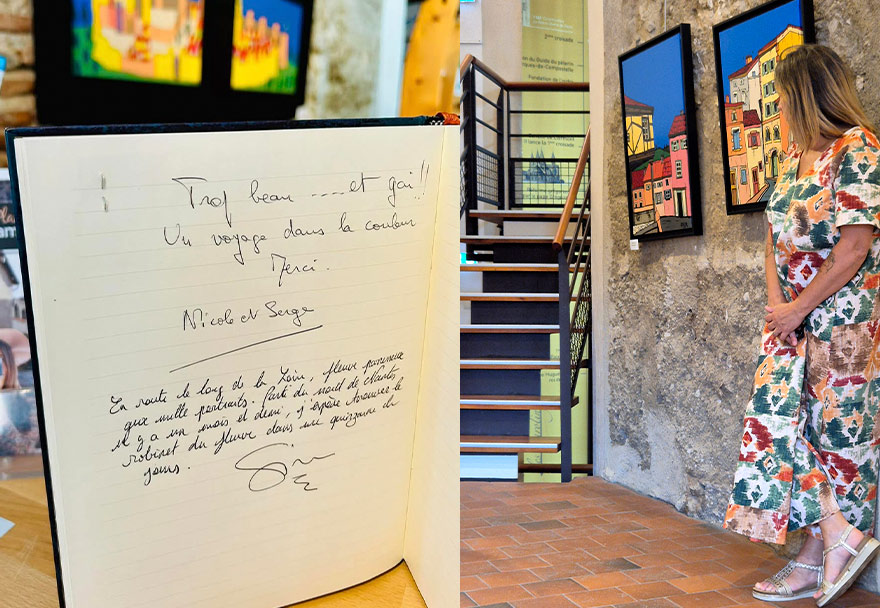 Trop beau ---- et gai !!
Un voyage dans la couleur
Merci.
Nicole et Serge
En route le long de la Loire, fleuve paresseux
aux mille portraits. Partie du nord de Nantes
il y a un mois et demi, j'espère trouver le
robinet du fleuve dans une quinzaine de
jours.
3ème croisade
du Guide du pèlerin
Fondation de